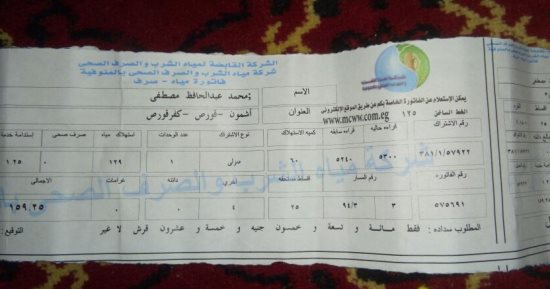 الشركة القابضة لمياه الشرب والصرف الصحى
شركة مياه الشرب والصرف الصحى بالمنوفية
فاتورة مياه - صرف
يمكن الإستعلام عن الفاتورة الخاصة بكم عن طريق الموقع الإلكترونى
www.mcww.com.eg
الخط الساخن ١٢٥
الاسم محمد عبدالحافظ مصطفى
العنوان أشمون - قورص - كفرقورص
رقم الاشتراك قراءه حاليه قراءه سابقه كميه الاستهلاك نوع الاشتراك عدد الوحدات استهلاك مياه صرف صحى استدامة خدمة
٣٨١/١/٥٧٩٢٢ ٥٣٠٠ ٥٢٤٠ ٦٠ منزلى ١ ١٢٩ ٠ ١.٢٥
رقم الفاتوره رقم المسار اقساط مستحقه أخري دائنه غرامات الاجمالى
٥٧٥٦٩١ ٣ ٩٤/٣ ٢٥ ٤ ٠ ٠ ١٥٩.٢٥
المطلوب سداده : فقط مائة و تسعة و خمسون جنيه و خمسة و عشرون قرش لا غير التوقيع :
شركة مياه الشرب والصرف الصحى